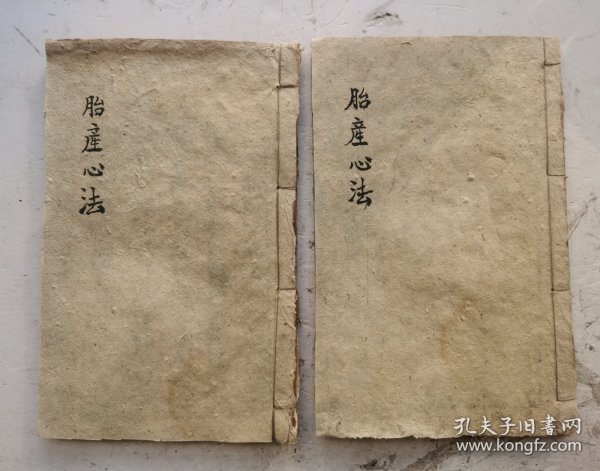 胎產心法
胎產心法
孔夫子旧书网
www.kongfz.com